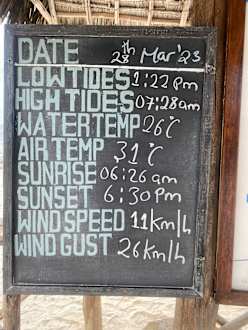 DATE 28th Mar'23
LOWTIDES 1:22 pm
HIGH TIDES 07:28am
WATERTEMP 26°C
AIR TEMP 31°C
SUNRISE 06:26 am
SUNSET 6:30 pm
WIND SPEED 11km/h
WIND GUST 26km/h